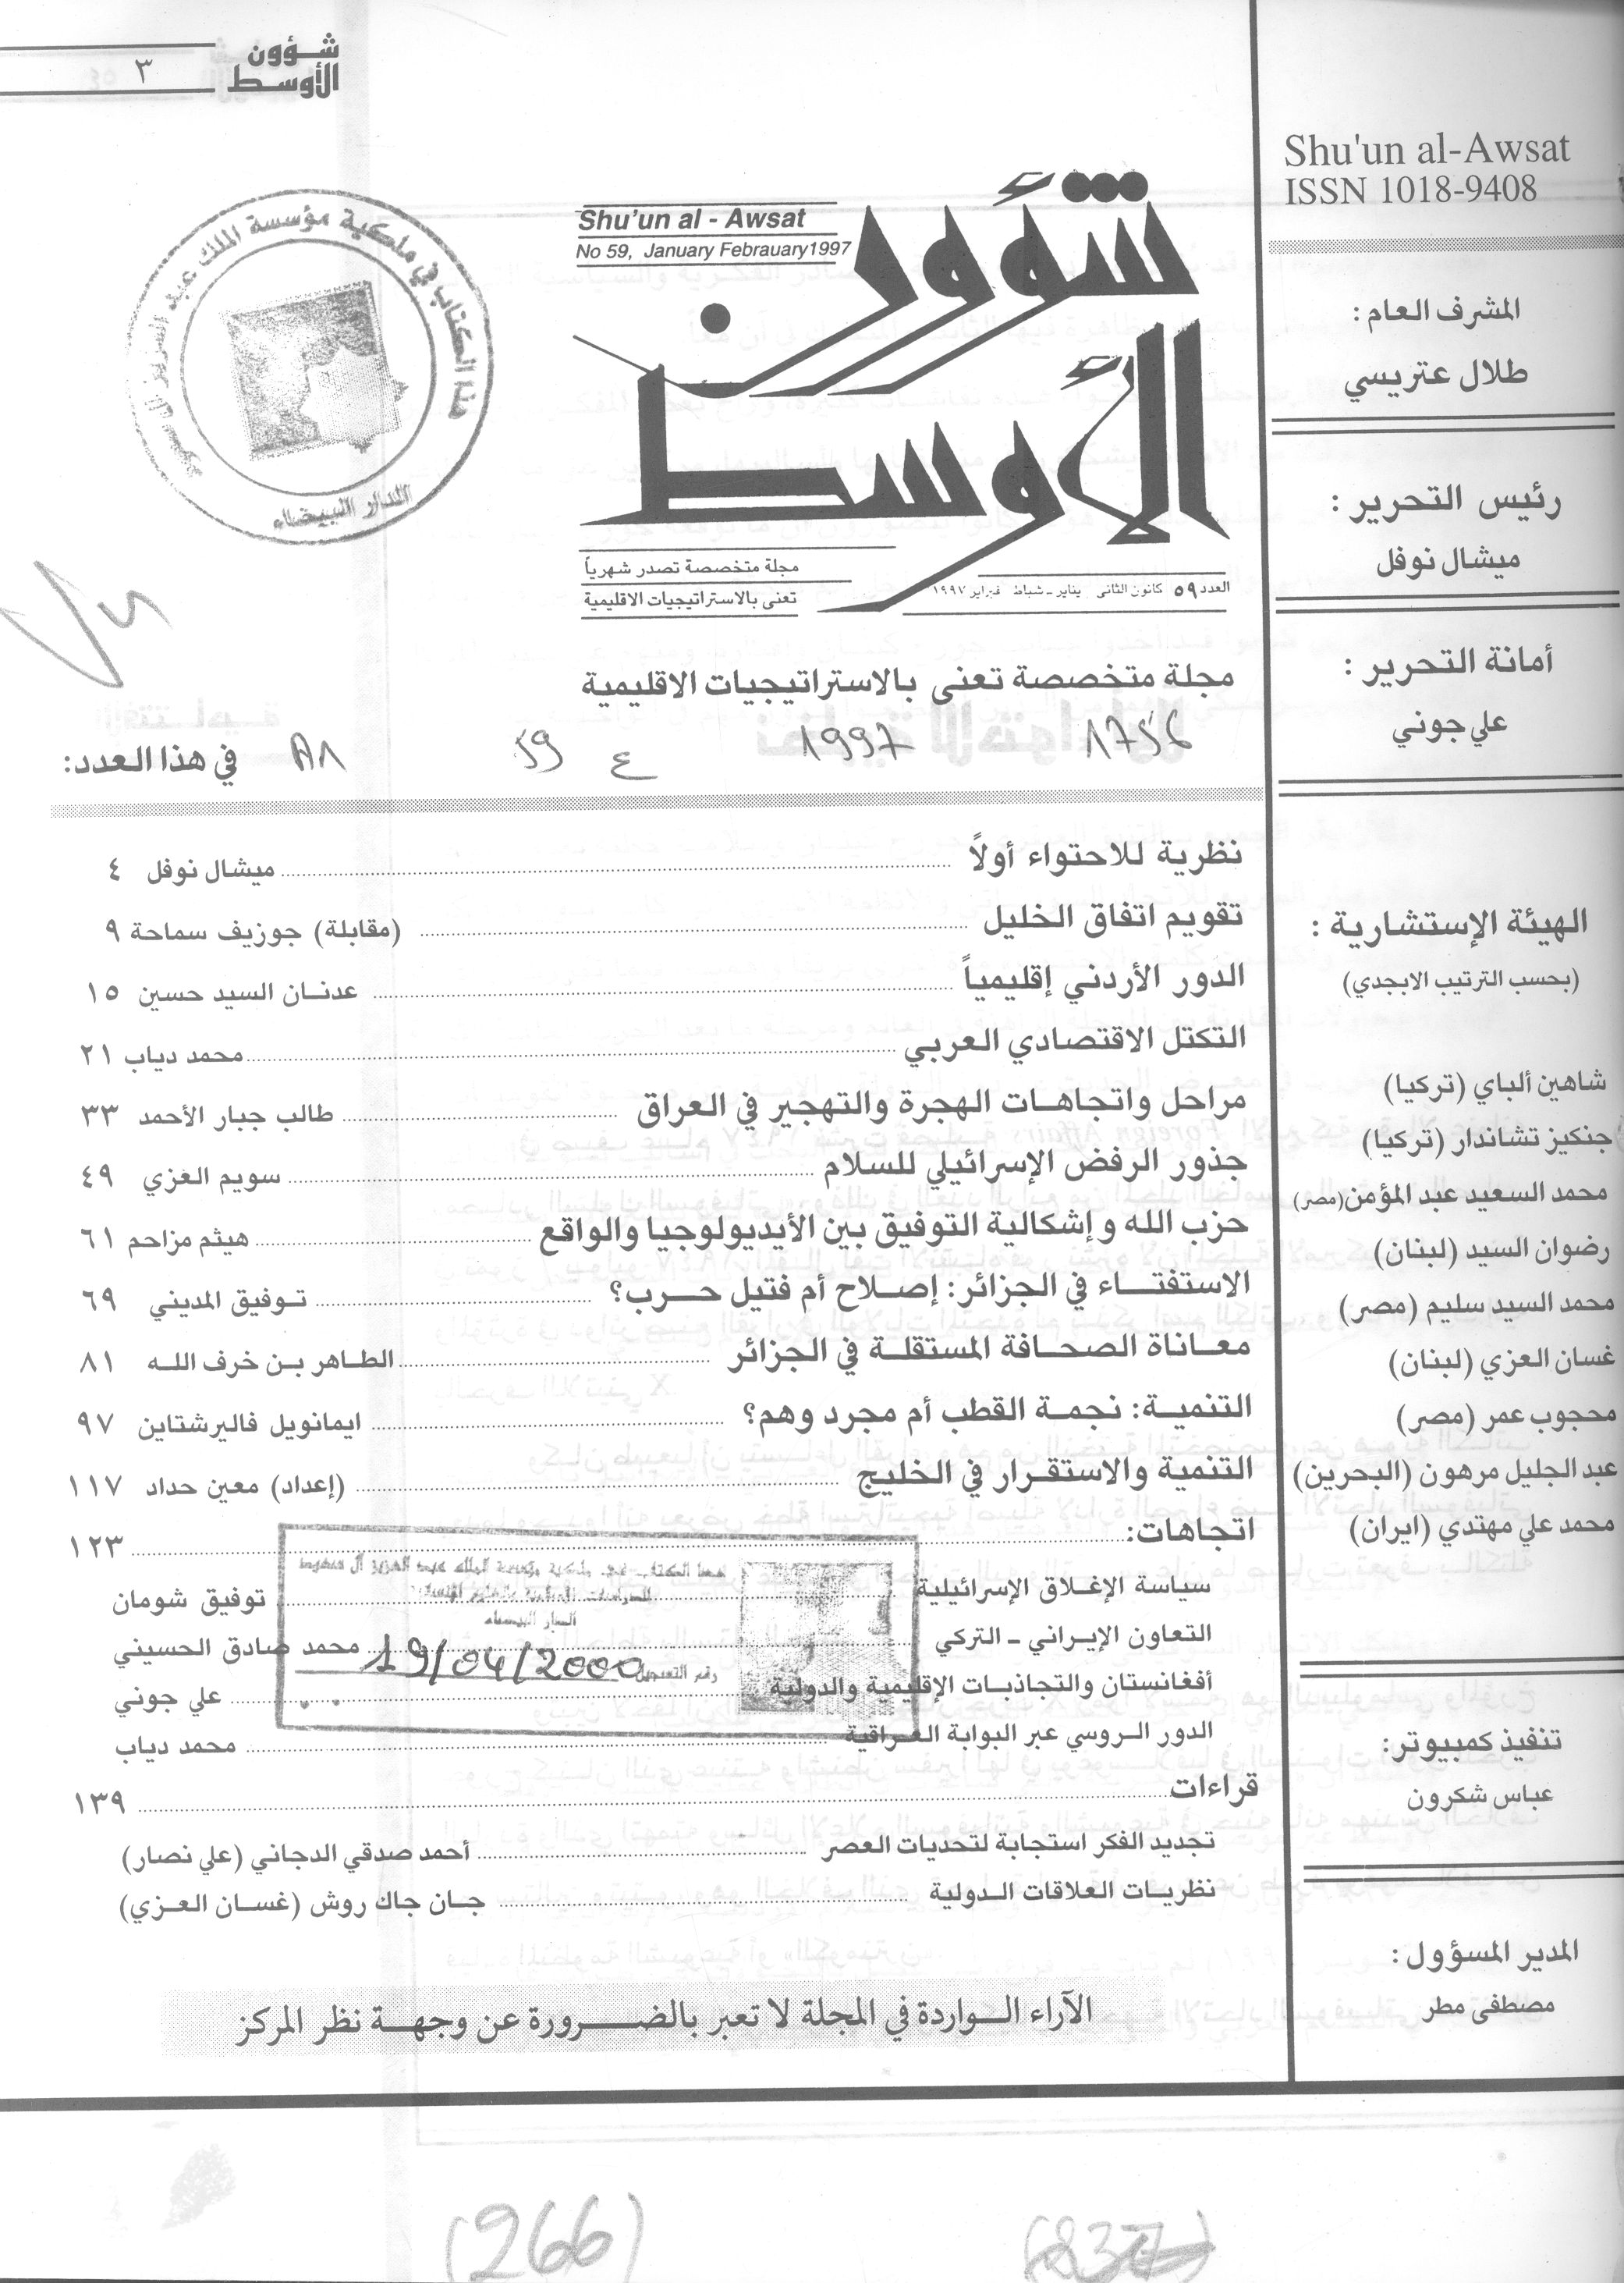 شؤون
الأوسط
٣
Shu'un al-Awsat
ISSN 1018-9408
المشرف العام :
طلال عتريسي
رئيس التحرير :
ميشال نوفل
أمانة التحرير :
علي جوني
الهيئة الإستشارية :
(بحسب الترتيب الابجدي)
شاهين ألباي (تركيا)
جنكيز تشاندار (تركيا)
محمد السعيد عبد المؤمن (مصر)
رضوان السيد (لبنان)
محمد السيد سليم (مصر)
غسان العزي (لبنان)
محجوب عمر (مصر)
عبد الجليل مرهون (البحرين)
محمد علي مهتدي (ايران)
تنفيذ كمبيوتر:
عباس شكرون
المدير المسؤول :
مصطفى مطر
Shu'un al - Awsat
No 59, January Febrauary1997
شؤون
الأوسط
مجلة متخصصة تصدر شهرياً
تعنى بالاستراتيجيات الاقليمية
العدد ٥٩ كانون الثاني يناير ـ شباط فبراير ١٩٩٧
هذا الكتاب في ملكية مؤسسة الملك عبد العزيز آل سعود
الدار البيضاء
مجلة متخصصة تعنى بالاستراتيجيات الاقليمية
1756 1997 ع 59
في هذا العدد:
نظرية للاحتواء أولاً ميشال نوفل ٤
تقويم اتفاق الخليل (مقابلة) جوزيف سماحة ٩
الدور الأردني إقليمياً عدنان السيد حسين ١٥
التكتل الاقتصادي العربي محمد دياب ٢١
مراحل واتجاهات الهجرة والتهجير في العراق طالب جبار الأحمد ٣٣
جذور الرفض الإسرائيلي للسلام سويم العزي ٤٩
حزب الله وإشكالية التوفيق بين الأيديولوجيا والواقع هيثم مزاحم ٦١
الاستفتاء في الجزائر: إصلاح أم فتيل حرب؟ توفيق المديني ٦٩
معاناة الصحافة المستقلة في الجزائر الطاهر بن خرف الله ٨١
التنمية: نجمة القطب أم مجرد وهم؟ ايمانويل فاليرشتاين ٩٧
التنمية والاستقرار في الخليج (إعداد) معين حداد ١١٧
اتجاهات: ١٢٣
سياسة الإغلاق الإسرائيلية توفيق شومان
التعاون الإيراني ـ التركي محمد صادق الحسيني
أفغانستان والتجاذبات الإقليمية والدولية علي جوني
الدور الروسي عبر البوابة العراقية محمد دياب
الدار البيضاء
رقم التسجيل 19/04/2000
قراءات ١٣٩
تجديد الفكر استجابة لتحديات العصر أحمد صدقي الدجاني (علي نصار)
نظريات العلاقات الدولية جان جاك روش (غسان العزي)
الآراء الواردة في المجلة لا تعبر بالضرورة عن وجهة نظر المركز
(266)